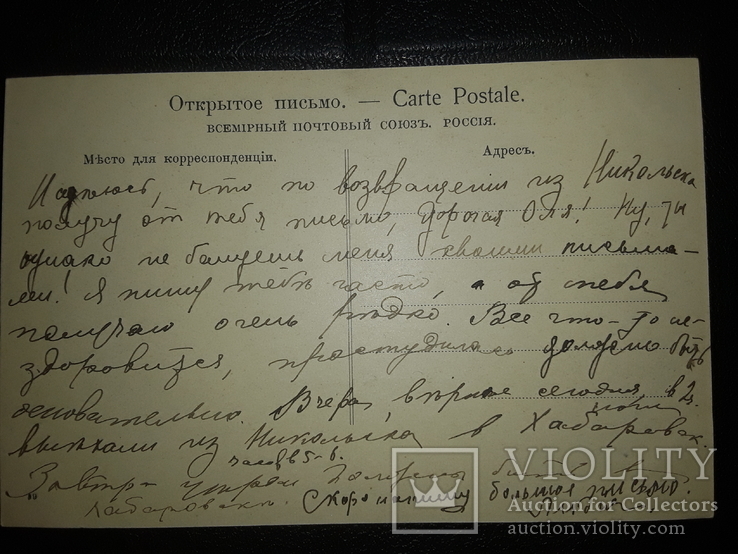 Открытое письмо. — Carte Postale.
ВСЕМІРНЫЙ ПОЧТОВЫЙ СОЮЗЪ. РОССІЯ.
Мѣсто для корреспонденціи.
Адресъ.
Надѣюсь, что по возвращеніи из Никольска
получу от тебя письмо, дорогая Оля! Ну, ты
однако не балуешь меня своими письма-
ми! Я пишу тебѣ часто, а от тебя
получаю очень рѣдко. Все что-то не-
здоровится, простудилась должно быть
основательно. Вчера, вѣрнѣе сегодня, в 2 ч.
ночи
выѣхали из Никольска в Хабаровск.
часов в 5-6.
Завтра должны быть в
Хабаровск. Скоро напишу большое письмо.
VIOLITY
Auction for Collectors
auction.violity.com